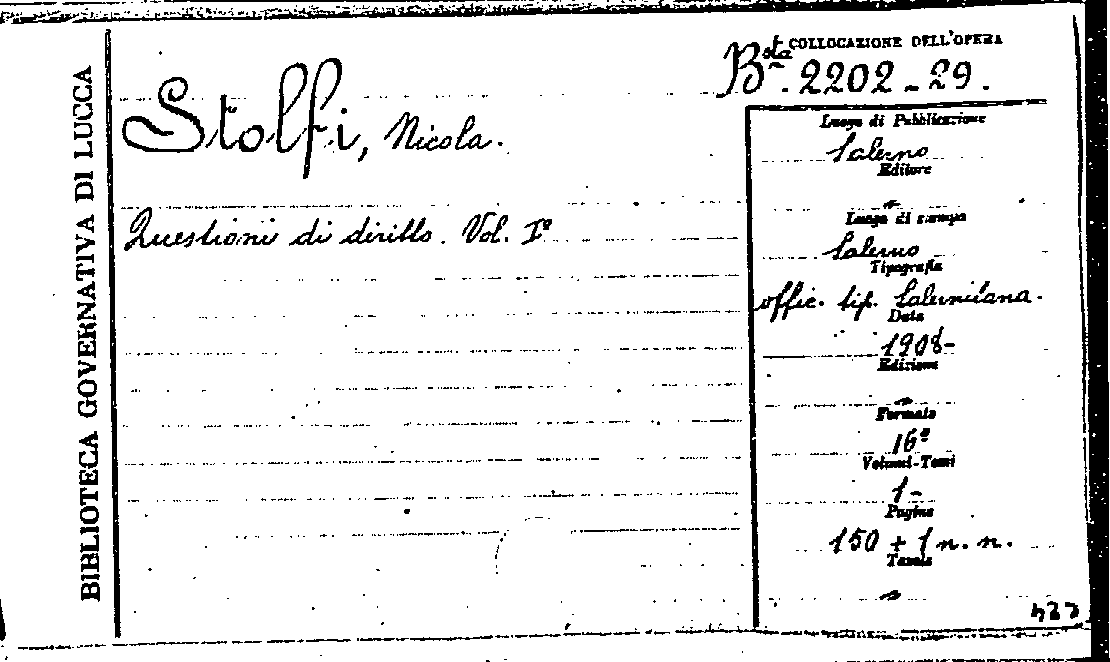 BIBLIOTECA GOVERNATIVA DI LUCCA
COLLOCAZIONE DELL'OPERA
Bsta. 2202-29.
Stolfi, Nicola.
Questioni di diritto. Vol. Iº
Luogo di Pubblicazione
Salerno
Editore
"
Luogo di stampa
Salerno
Tipografia
offic. tip. Salernitana.
Data
1908-
Edizione
"
Formato
16º
Volumi-Tomi
1-
Pagine
150 + 1 n. n.
Tavole
"